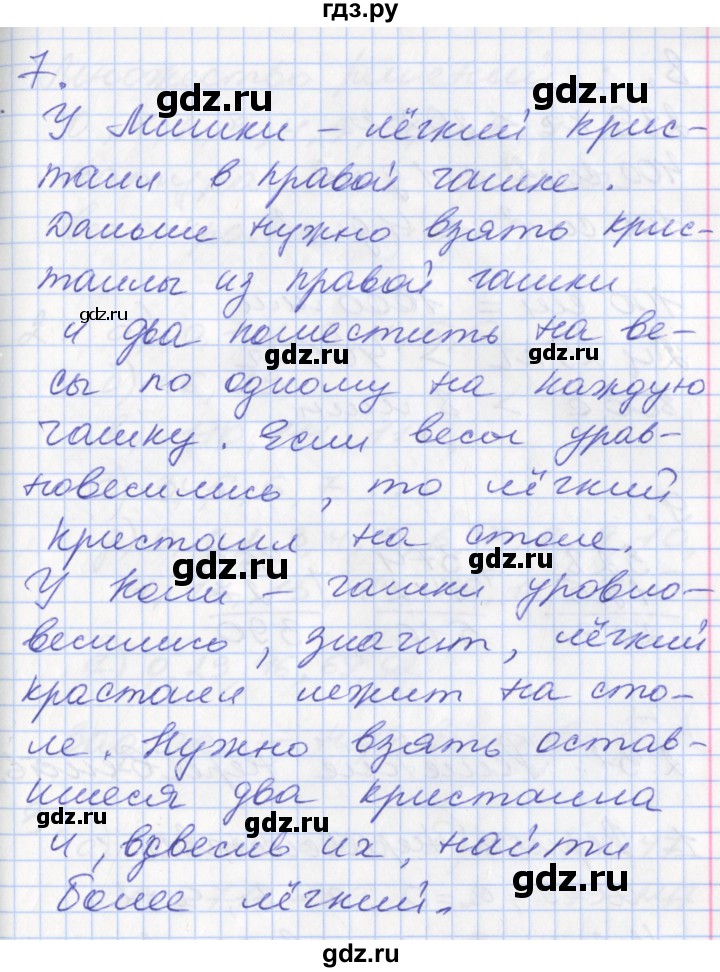 гдз.ру
7.
gdz.ru
gdz.ru
У Мишки – лёгкий крис-
талл в правой чашке.
gdz.ru
gdz.ru
Дальше нужно взять крис-
таллы из правой чашки
gdz.ru
и два поместить на ве-
gdz.ru
gdz.ru
сы по одному на каждую
чашку. Если весы урав-
новесились, то лёгкий
кристалл на столе.
gdz.ru
gdz.ru
У Коли – чашки уровно-
весились, значит, лёгкий
красталл лежит на сто-
gdz.ru
gdz.ru
ле. Нужно взять остав-
шиеся два кристалла
gdz.ru
gdz.ru
и, взвесив их, найти
gdz.ru
более лёгкий.
gdz.ru
gdz.ru